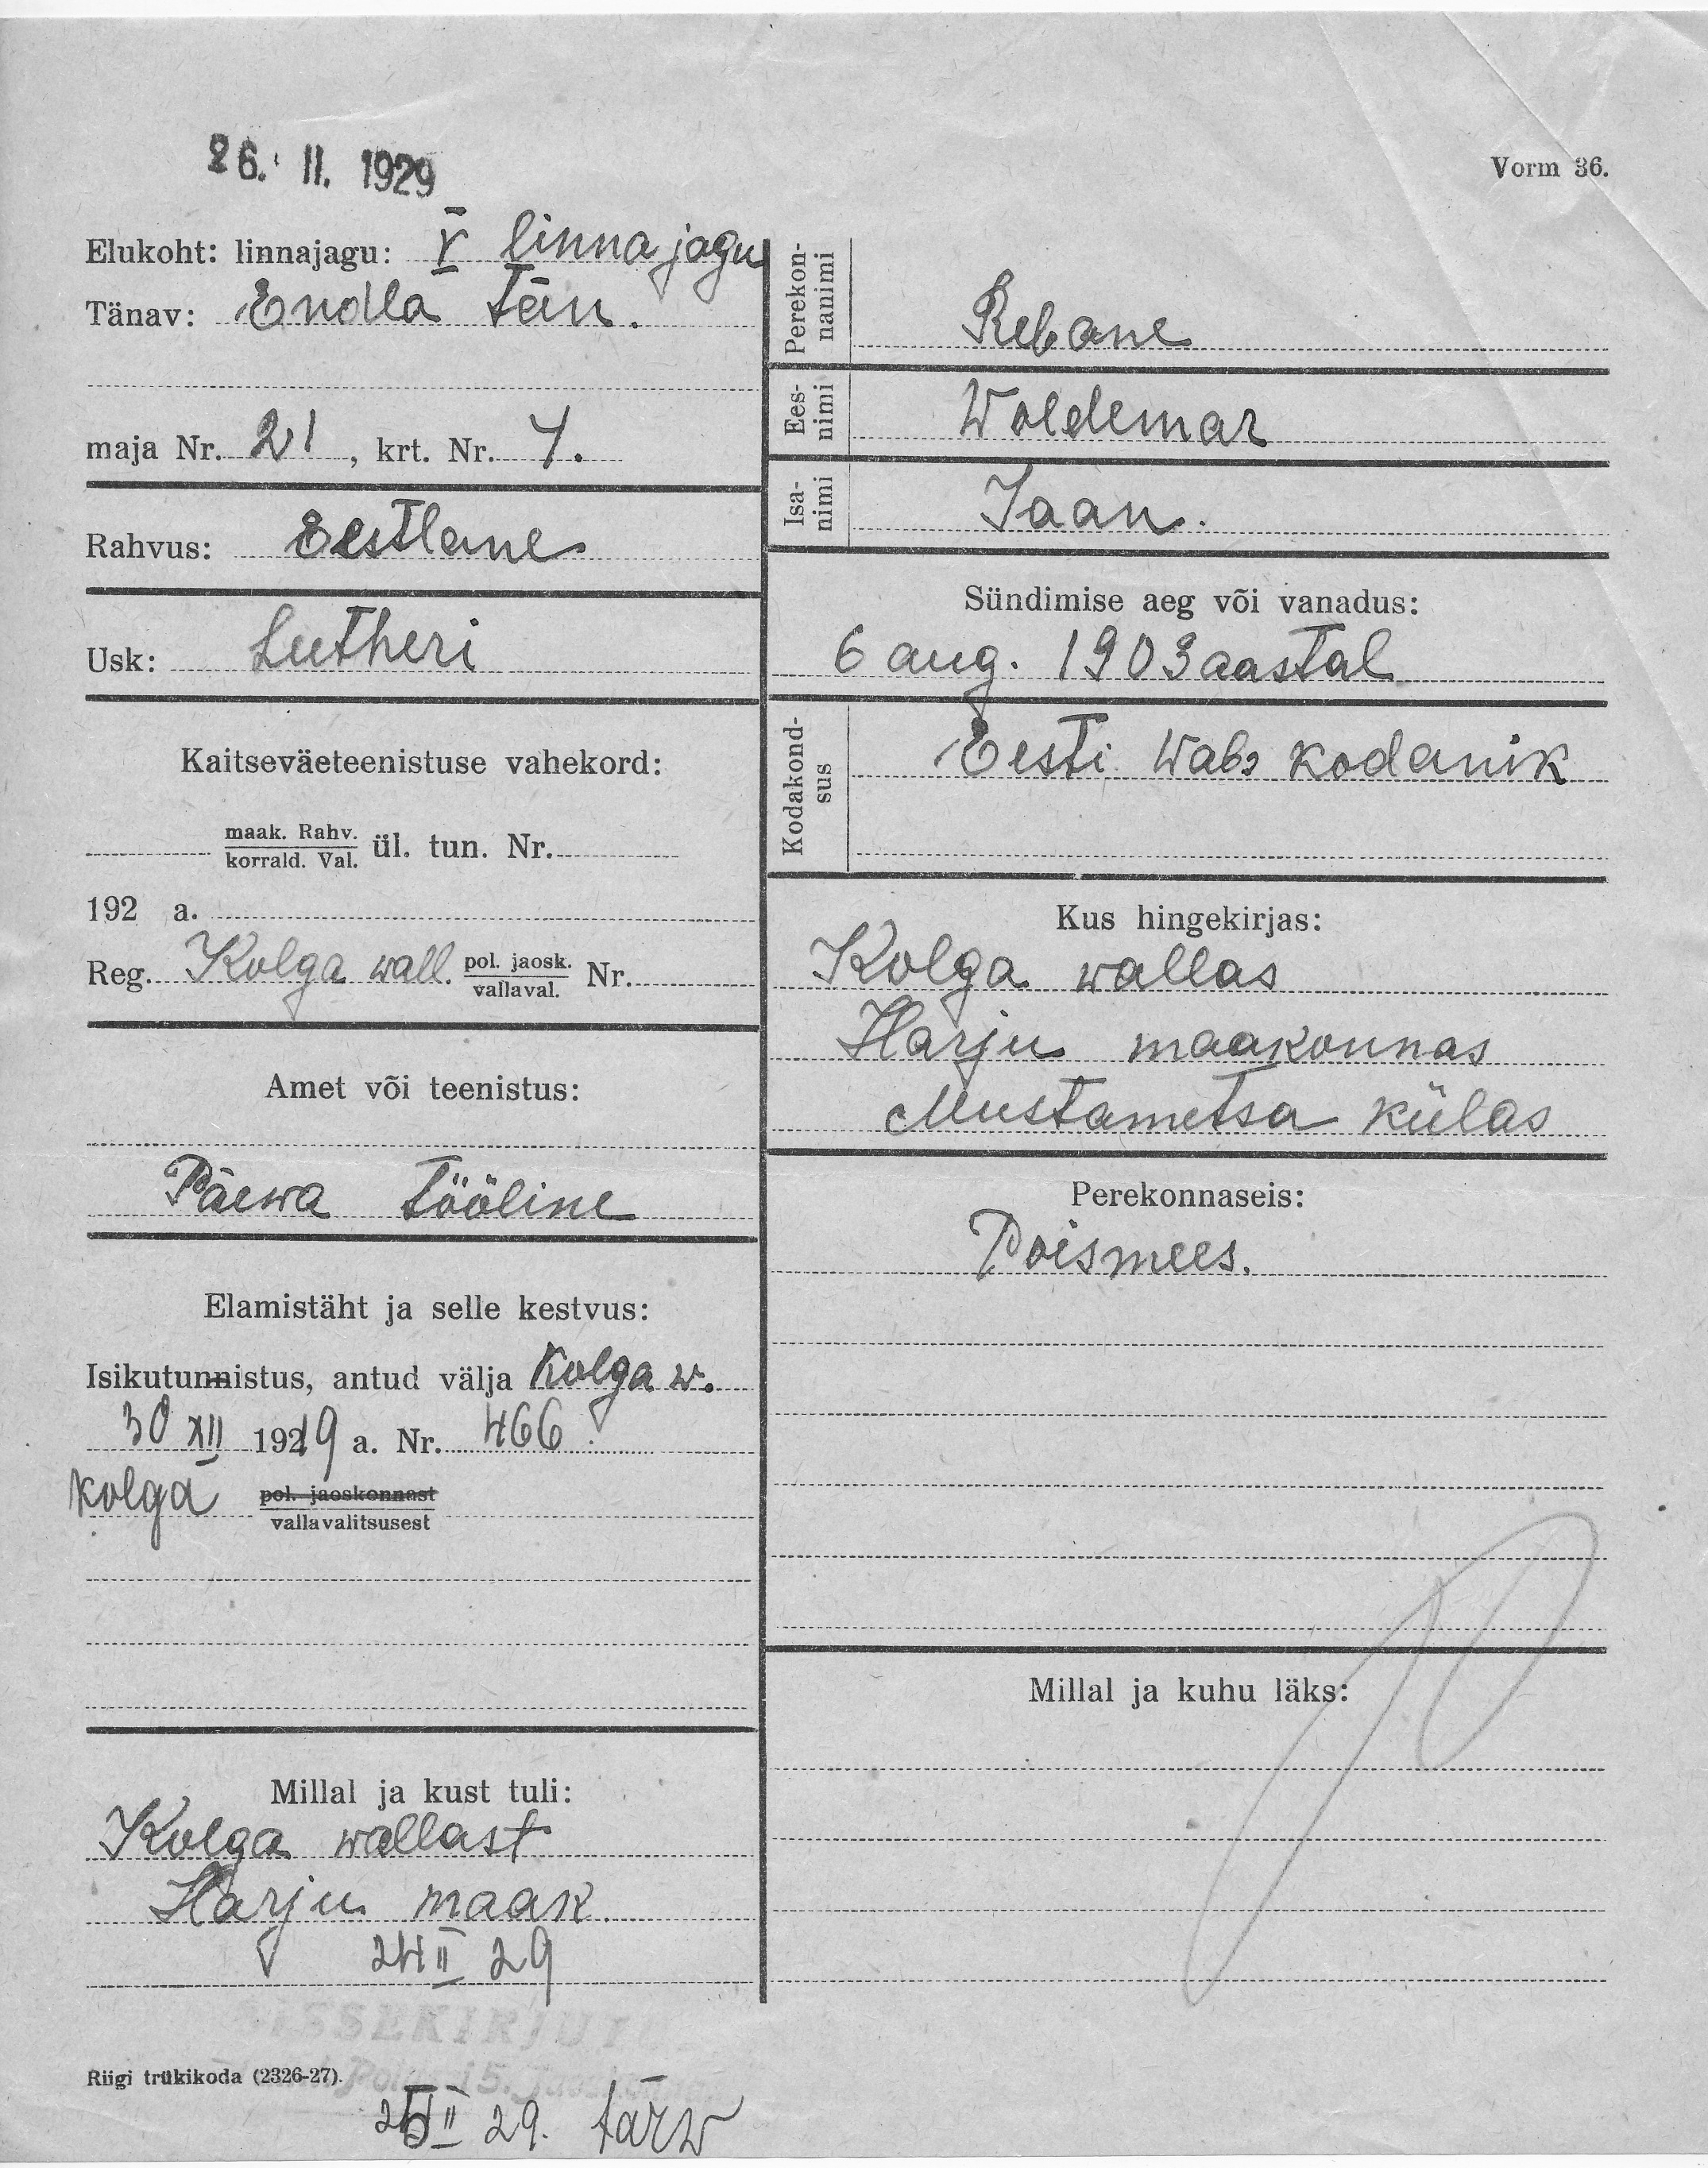 26. II. 1929
Vorm 36.
Elukoht: linnajagu: V linna jagu
Tänav: Endla tän.
maja Nr. 21, krt. Nr. 7.
Rahvus: Eestlane
Usk: Lutheri
Kaitseväeteenistuse vahekord:
maak. Rahv.
korrald. Val. ül. tun. Nr.
192 a.
Reg. Kolga wall. pol. jaosk. Nr.
vallaval.
Amet või teenistus:
Päewa tööline
Elamistäht ja selle kestvus:
Isikutunnistus, antud välja Kolga w.
30 XII 1919 a. Nr. 466.
Kolga pol. jaoskonnast
vallavalitsusest
Millal ja kust tuli:
Kolga wallast
Harju maak.
24 II 29
Perekonnanimi
Rebane
Eesnimi
Woldemar
Isanimi
Jaan.
Sündimise aeg või vanadus:
6 aug. 1903 aastal
Kodakondsus
Eesti Wab. kodanik
Kus hingekirjas:
Kolga wallas
Harju maakonnas
Mustametsa külas
Perekonnaseis:
Poismees.
Millal ja kuhu läks:
SISSEKIRJUT
Riigi trükikoda (2326-27).
II 29.